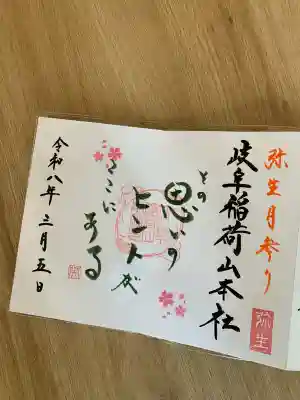 弥生月参り
岐阜稲荷山本社
その
思いの
ヒントが
ここに
ある
令和八年三月五日
弥生